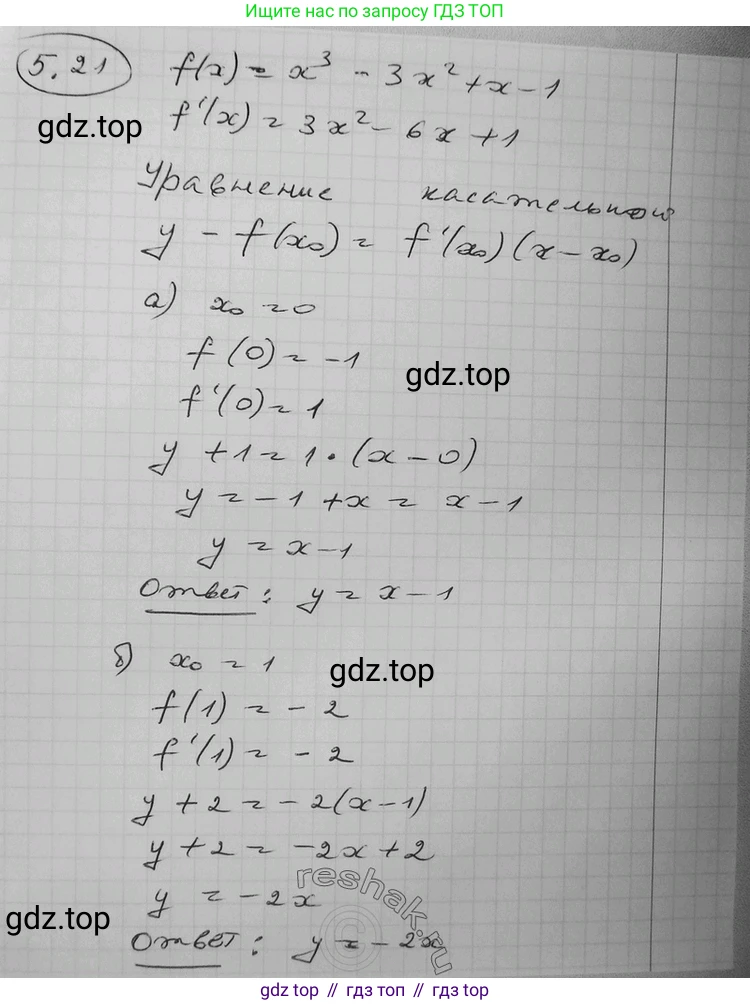 Ищите нас по запросу ГДЗ ТОП
5.21 f(x) = x³ - 3x² + x - 1
gdz.top f'(x) = 3x² - 6x + 1
Уравнение касательной
y - f(x₀) = f'(x₀)(x - x₀)
а) x₀ = 0
f(0) = -1
gdz.top
f'(0) = 1
y + 1 = 1 · (x - 0)
y = -1 + x = x - 1
y = x - 1
Ответ: y = x - 1
б) x₀ = 1
gdz.top
f(1) = -2
f'(1) = -2
y + 2 = -2(x - 1)
y + 2 = -2x + 2
y = -2x
reshak.ru
gdz.top
Ответ: y = -2x
gdz.top // гдз топ // gdz.top // гдз топ